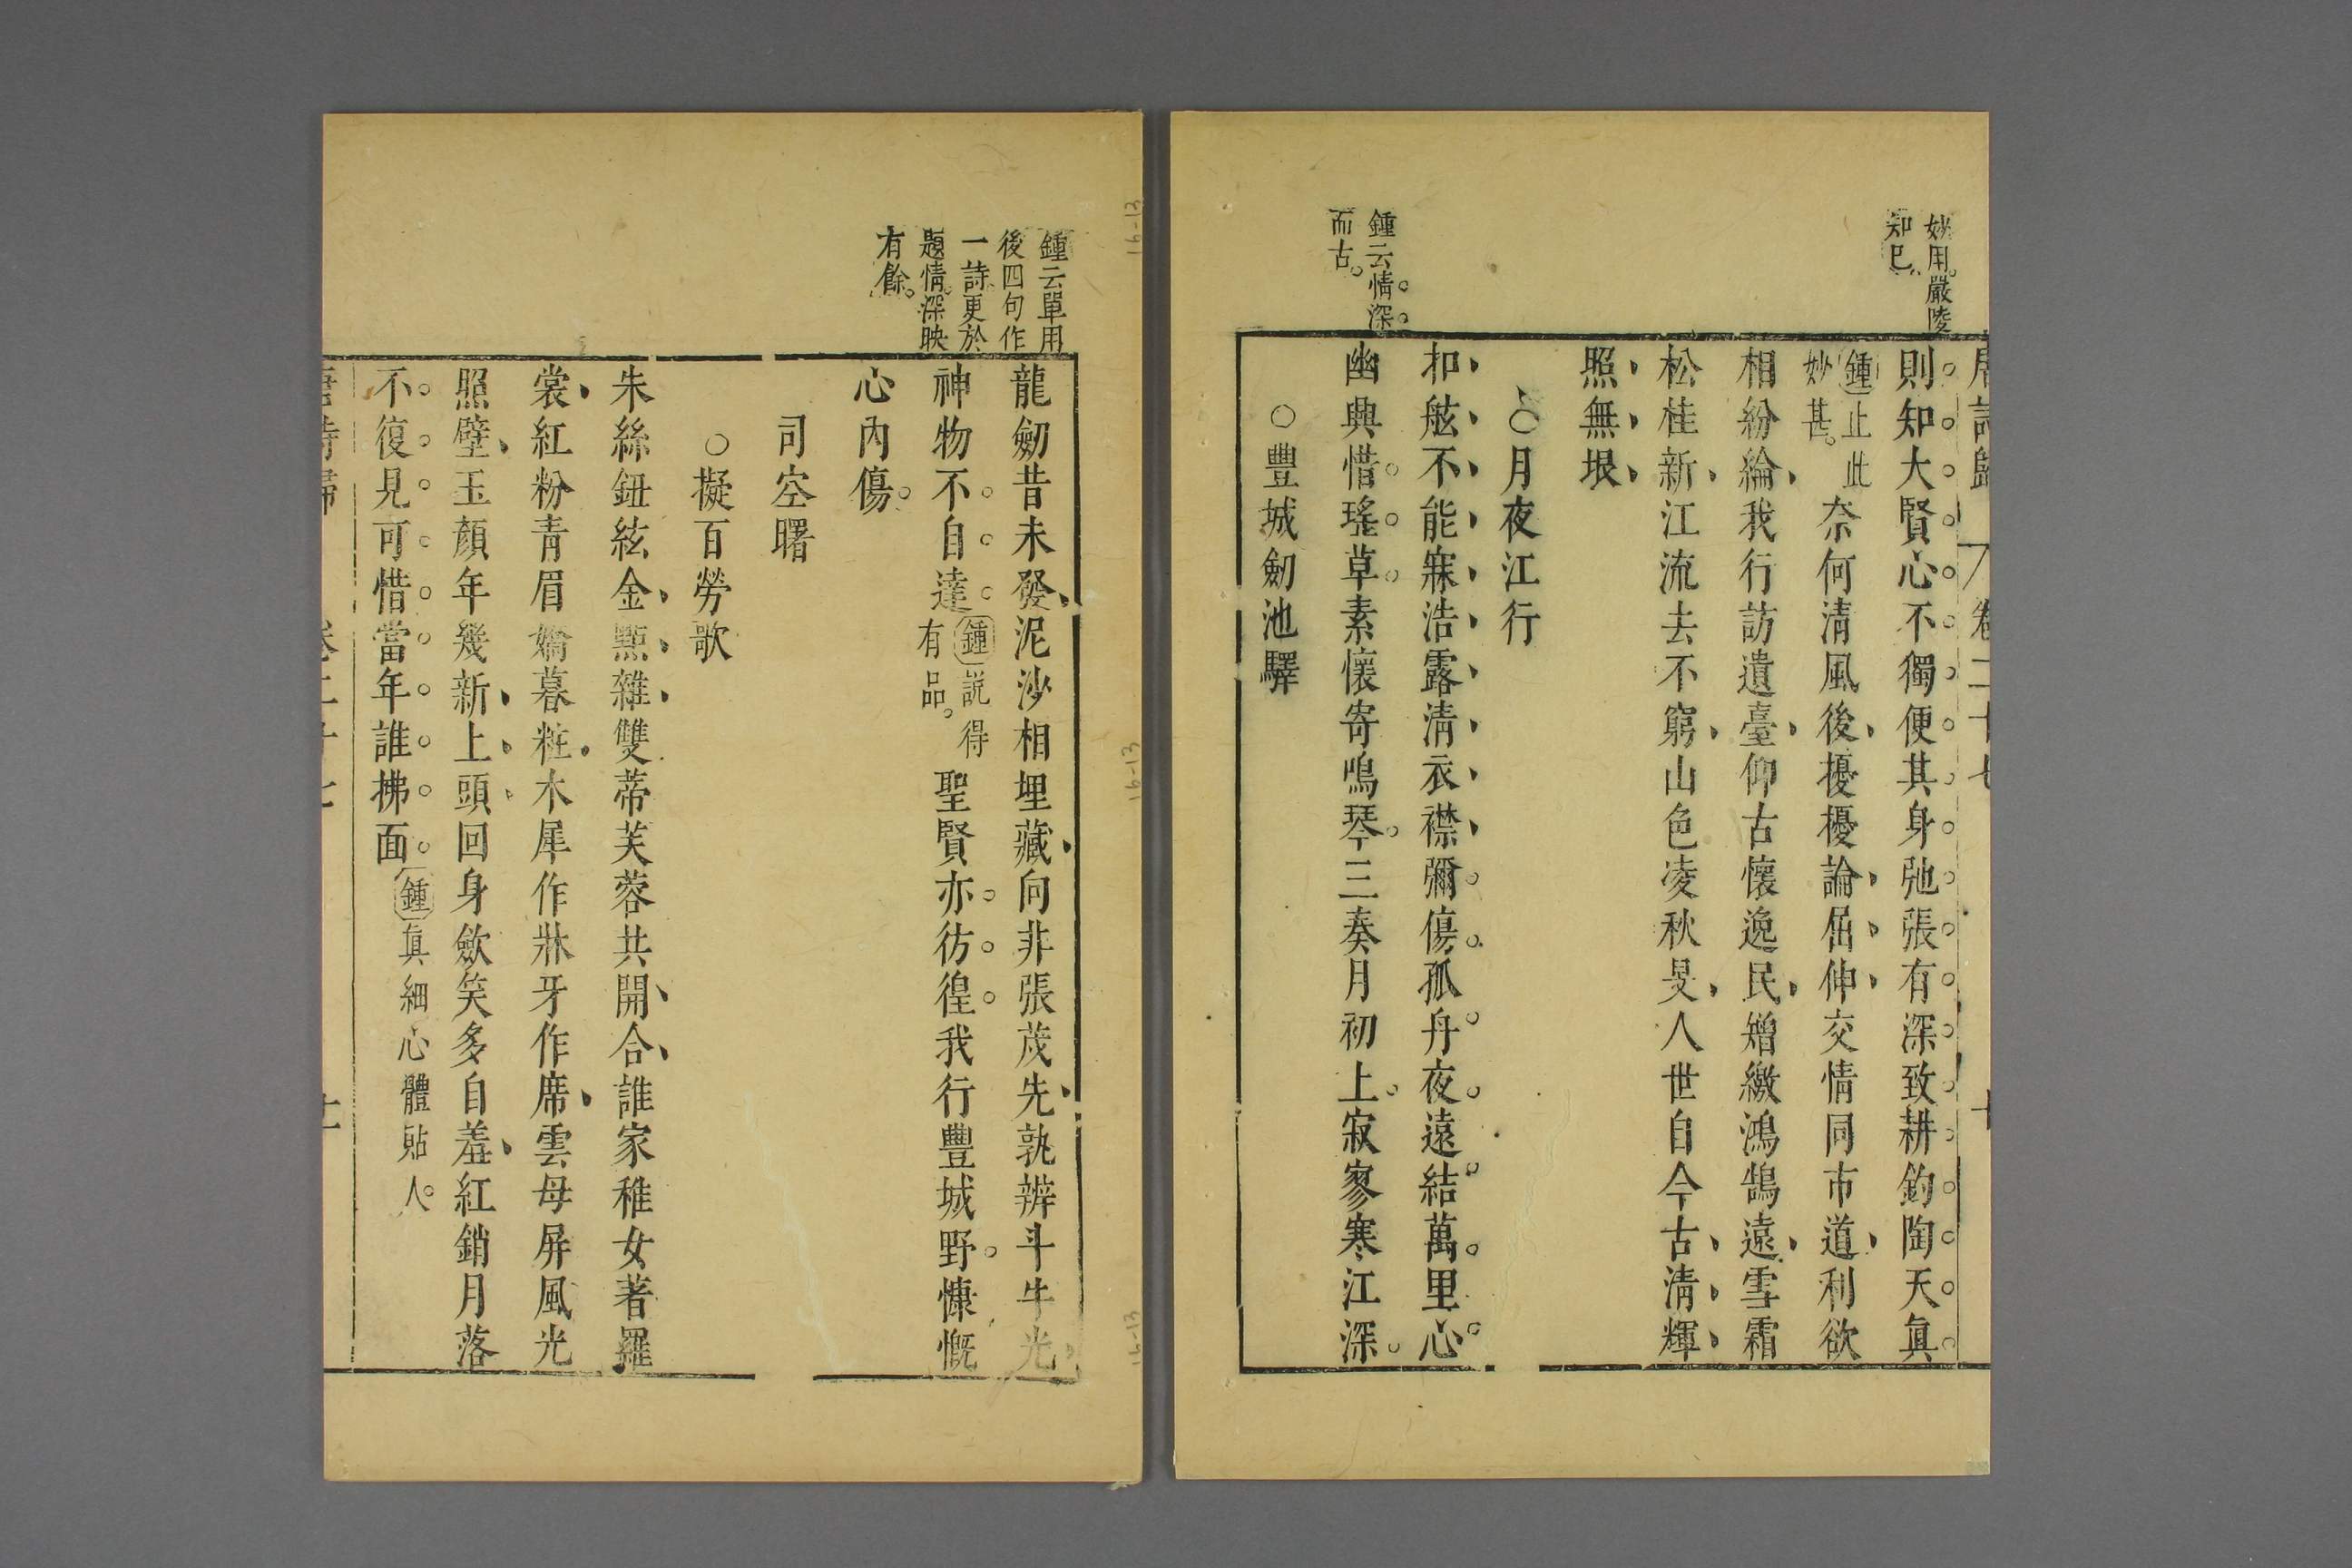 唐詩歸 卷二十七 十
妙用嚴陵
知巳
則知大賢心不獨便其身弛張有深致耕釣陶天眞
鍾止此
妙甚
奈何清風後擾擾論屈伸交情同市道利欲
相紛綸我行訪遺臺仰古懷逸民矰繳鴻鵠遠雪霜
松桂新江流去不窮山色凌秋旻人世自今古清輝
照無垠
○月夜江行
扣舷不能寐浩露清衣襟彌傷孤舟夜遠結萬里心
鍾云情深
而古
幽興惜瑤草素懷寄鳴琴三奏月初上寂寥寒江深
○豐城劒池驛
鍾云單用
後四句作
一詩更於
題情深映
有餘
龍劒昔未發泥沙相埋藏向非張茂先孰辨斗牛光
神物不自達
鍾說得
有品
聖賢亦彷徨我行豐城野慷慨
心內傷
司空曙
○擬百勞歌
朱絲鈕絃金點雜雙蒂芙蓉共開合誰家稚女著羅
裳紅粉青眉嬌暮粧木犀作牀牙作席雲母屏風光
照壁玉顏年幾新上頭回身斂笑多自羞紅銷月落
不復見可惜當年誰拂面
鍾眞細心體貼人
唐詩歸 卷二十七 十一
16-13
16-13
16-13